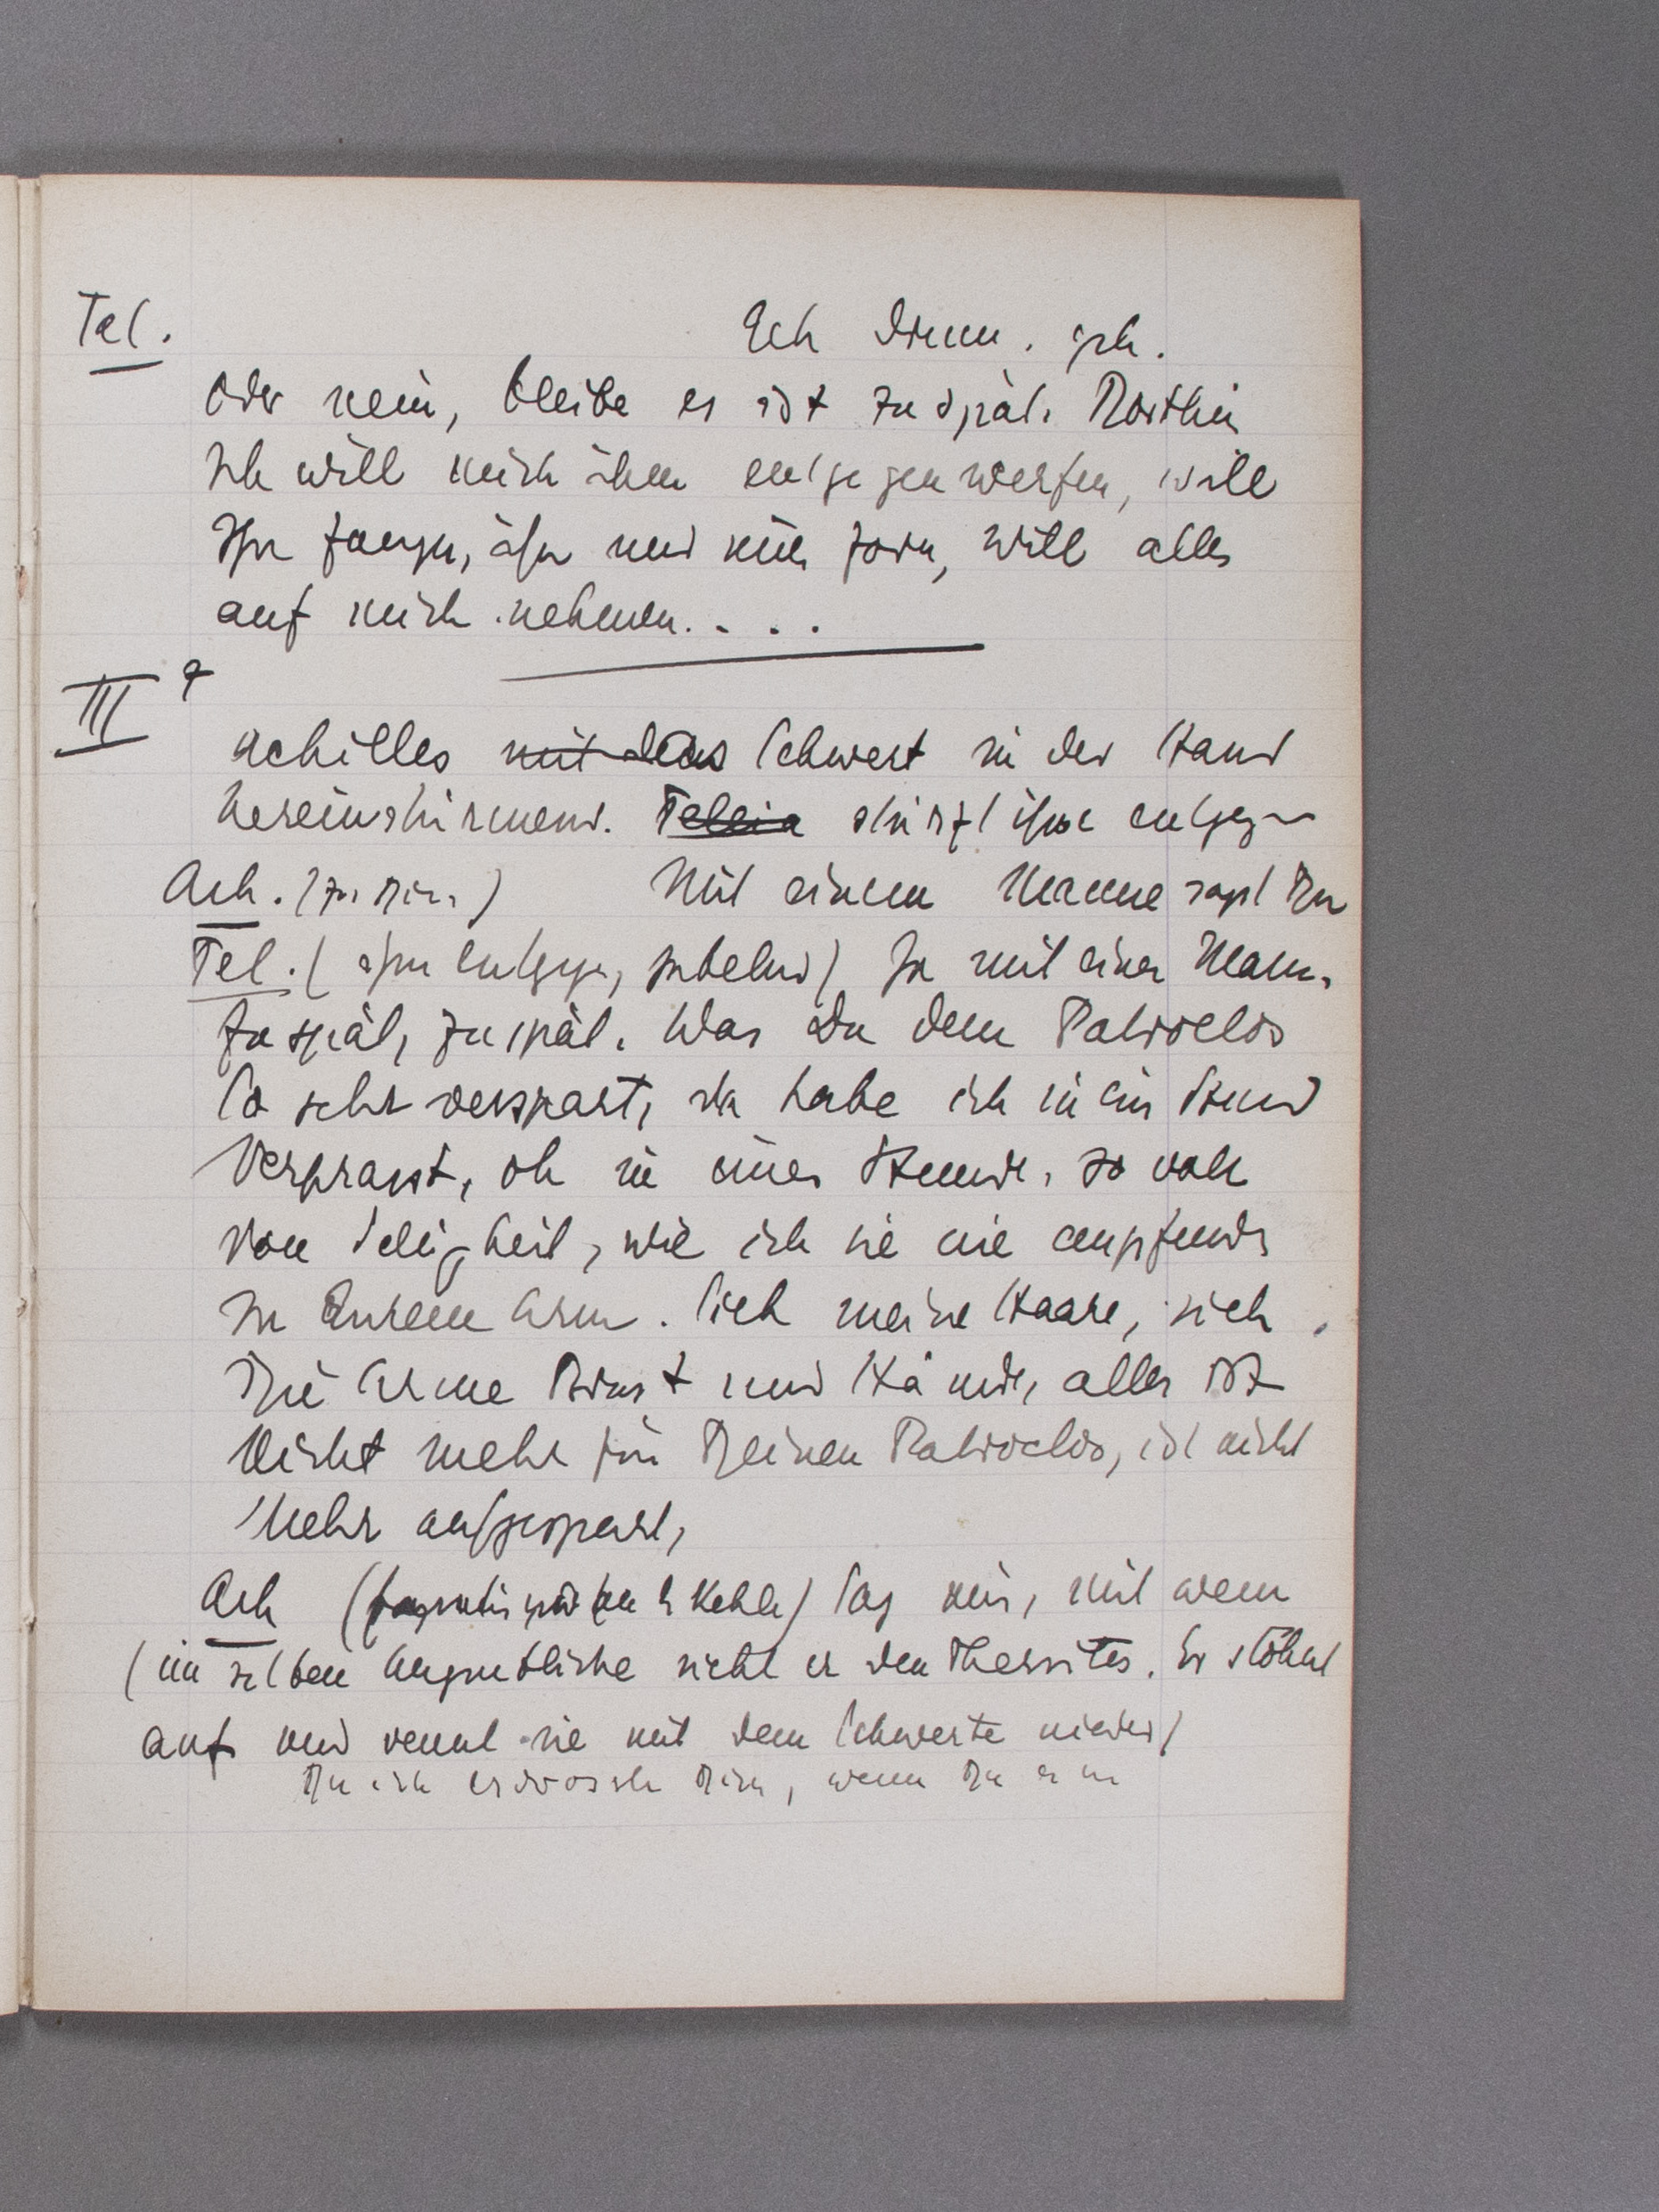 Tel. Geh drum. geh.
Oder nein, bleibe es ist zu spät. Dorthin
Ich will mich ihm entgegenwerfen, will
Ihn fangen, ihn und sein Zorn, will alles
auf mich nehmen. . . .
III 7
Achilles mit das Schwert in der Hand
hereinstürmend. Teleia stürzt ihm entgegen
Ach. (zu Dir.) Mit einem Manne sagst Du
Tel. (ihm entgegen, jubelnd) Ja mit einem Mann.
Zu spät, zu spät. Was Du dem Patroclos
So sehr verspart, da habe ich in ein Stund
Verprasst, oh in einer Stunde, so voll
Von Seligkeit, wie ich sie nie empfunden
In Eurem Arm. Sieh meine Haare, sieh
Die Arme Brust und Hände, alles ist
Nicht mehr für Deinen Patroclos, ist nicht
Mehr aufgespart,
Ach ( Kehle) Sag mir, mit wem
(im selben Augenblicke sieht er den Thersites. Er stöhnt
auf und rennt sie mit dem Schwerte nieder)
Du ich erdrossle Dich, wenn Du